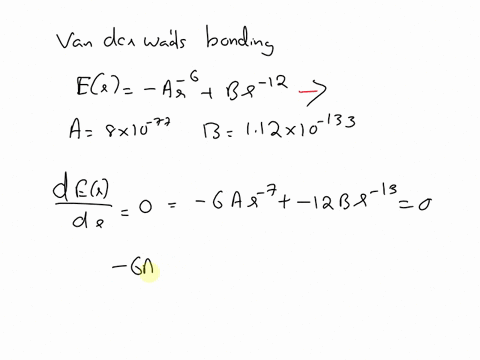 Van der waals bonding
E(r) = -Ar⁻⁶ + Br⁻¹² →
A = 8×10⁻⁷⁷ B = 1.12×10⁻¹³³
dE(r)/dr = 0 = -6Ar⁻⁷ + -12Br⁻¹³ = 0
-6A